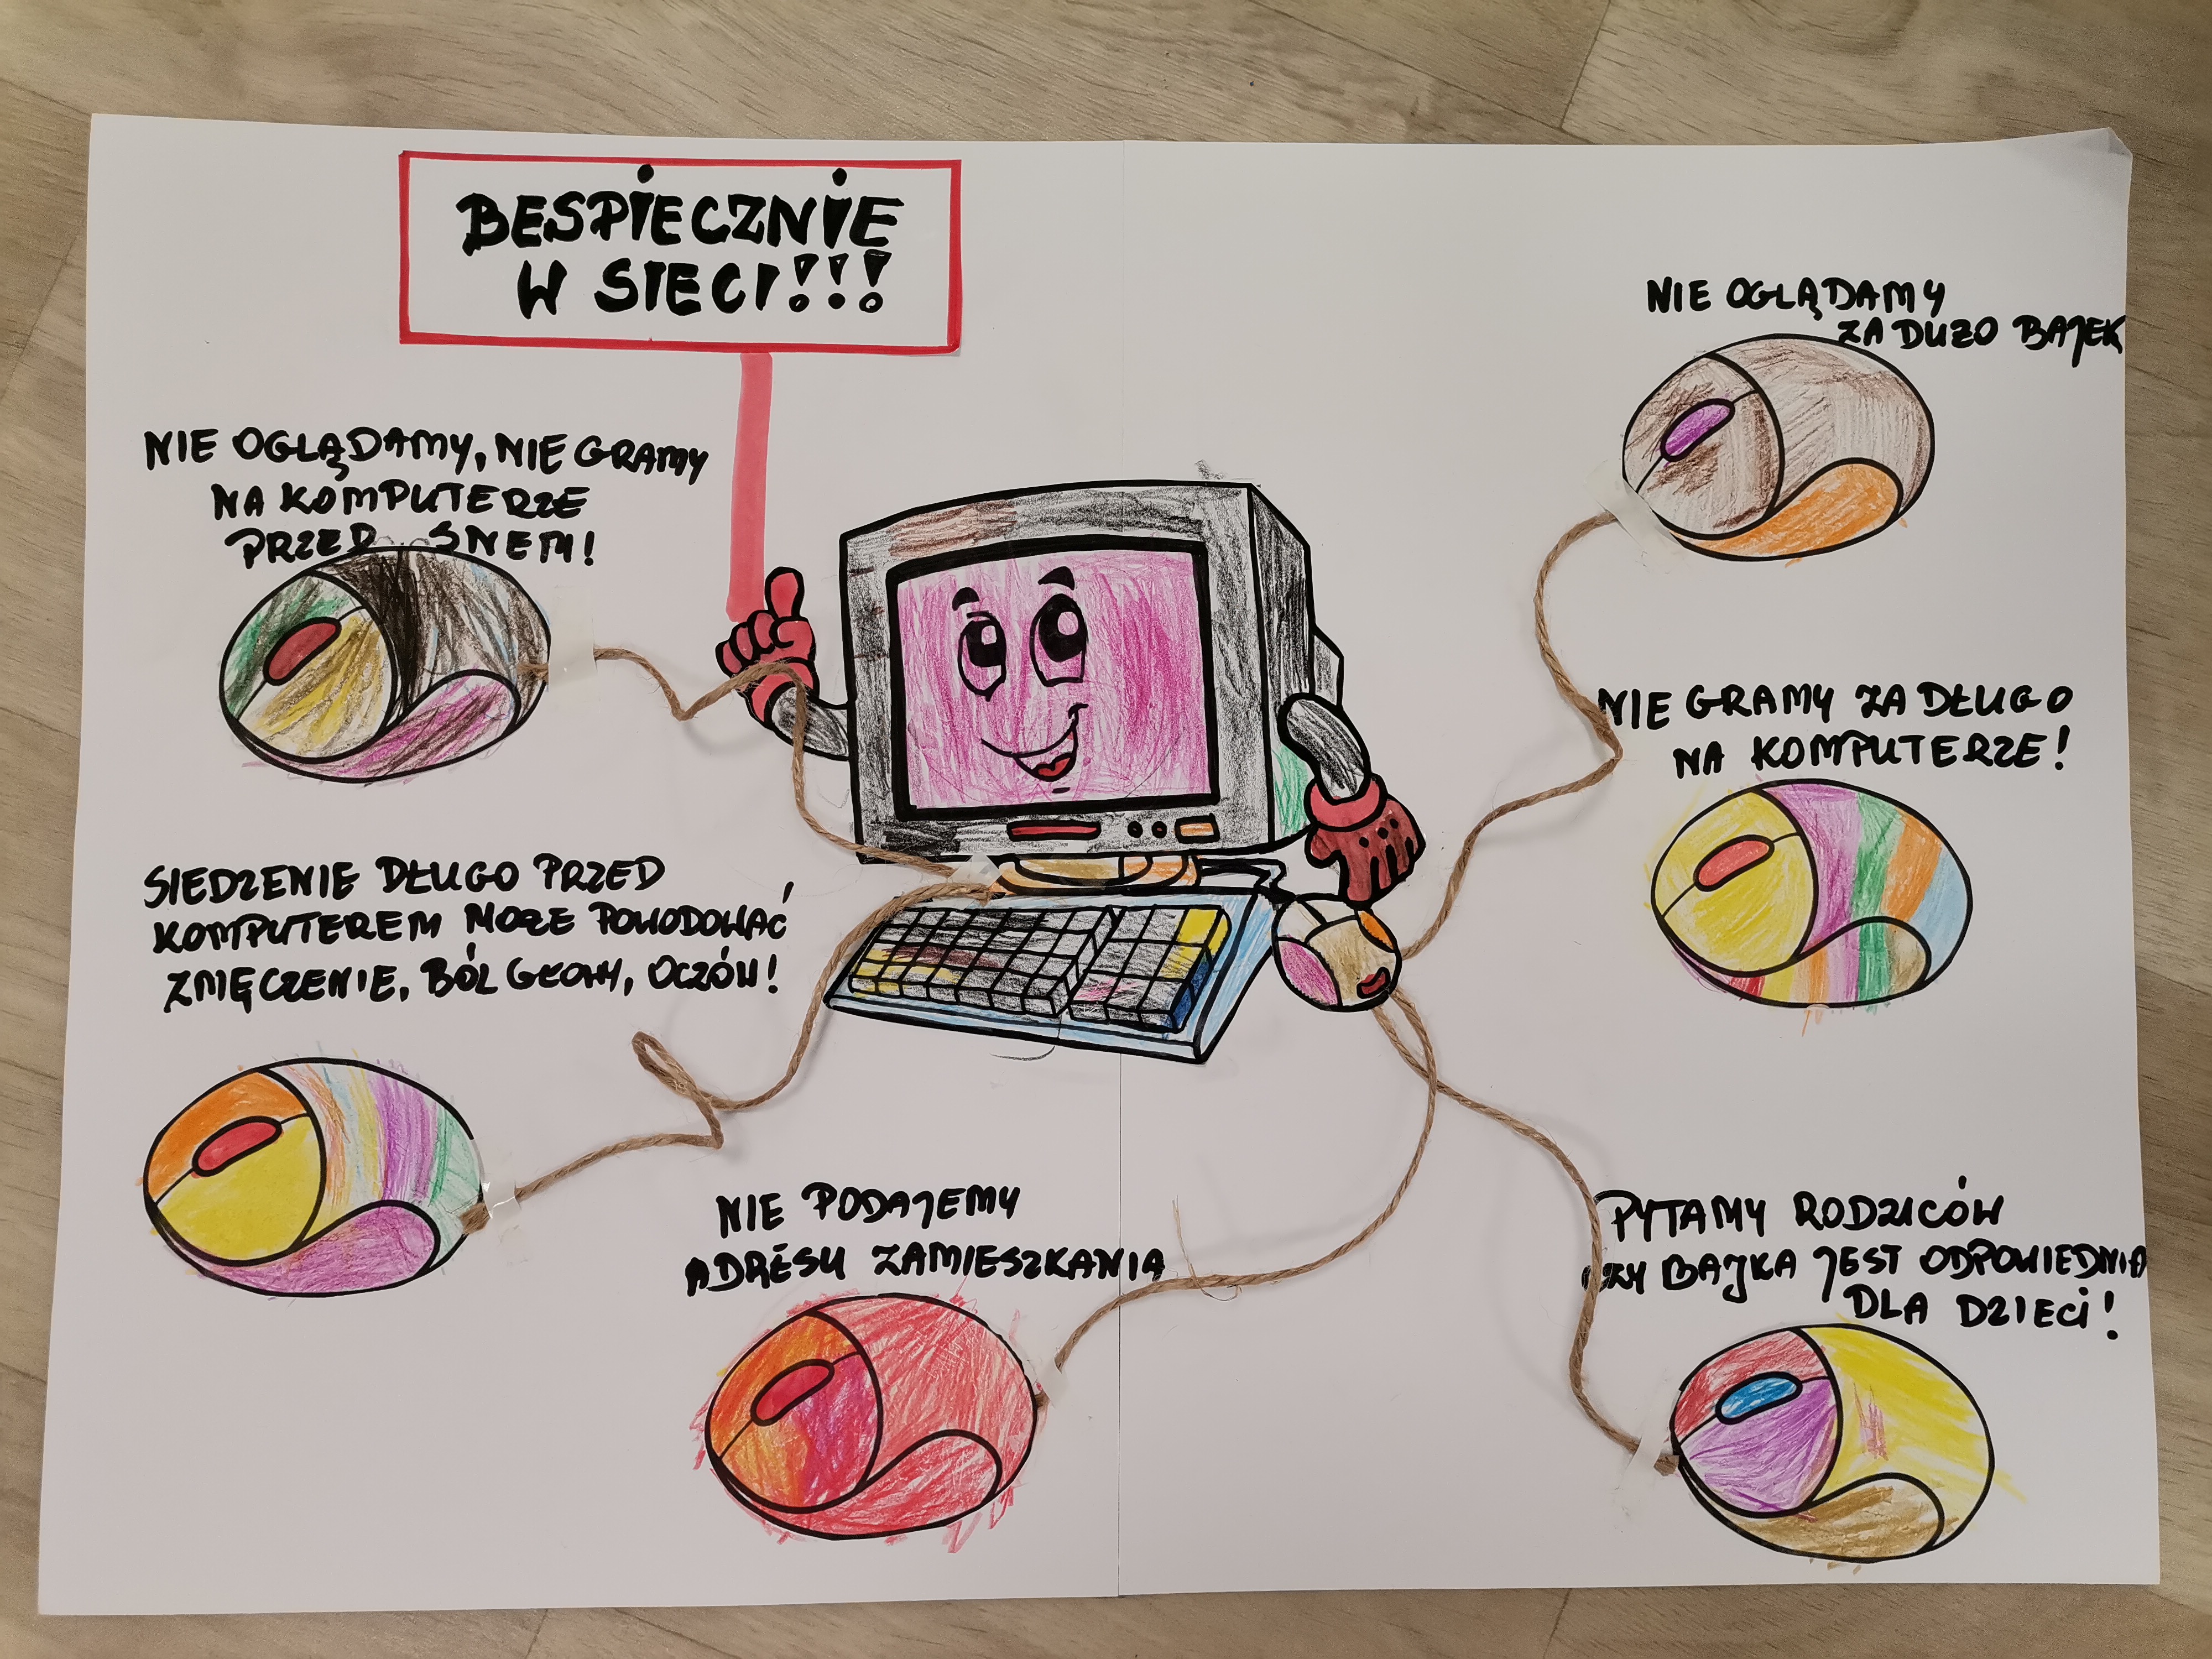 BESPIECZNIE
W SIECI!!!
NIE OGLĄDAMY, NIE GRAMY
NA KOMPUTERZE
PRZED SNEM!
SIEDZENIE DŁUGO PRZED
KOMPUTEREM MOŻE POWODOWAĆ
ZMĘCZENIE, BÓL GŁOWY, OCZÓW!
NIE PODAJEMY
ADRESU ZAMIESZKANIA
NIE OGLĄDAMY
ZA DUZO BAJEK
NIE GRAMY ZA DŁUGO
NA KOMPUTERZE!
PYTAMY RODZICÓW
CZY BAJKA JEST ODPOWIEDNIA
DLA DZIECI!